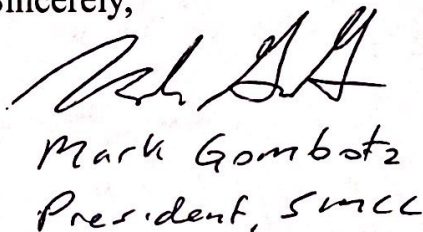 Sincerely,
Mark Gombotz
President, SMCC